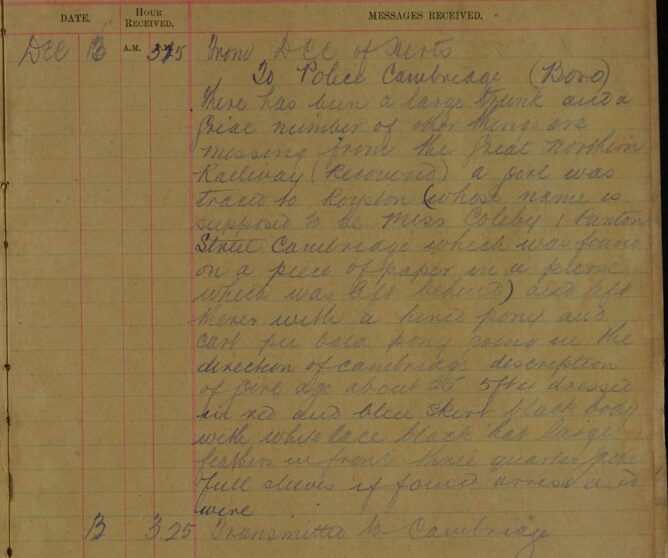 DATE. HOUR RECEIVED. MESSAGES RECEIVED.
Dec 13 A.M. 3.15 From DCC of Herts
To Police Cambridge (Boro)
There has been a large trunk and a
great number of other things are
missing from the great northern
Railway (Recovered) a girl was
traced to Royston (whose name is
supposed to be Miss Coleby 1 Panton
Street Cambridge which was found
on a piece of paper in a purse
which was left behind) and left
there with a hired pony and
cart pie bald pony going in the
direction of cambridge description
of girl age about 25 5ft dressed
in red and blue skirt black body
with white lace black hat large
feathers in front three quarter
full sleeves if found arrest and
wire
13 3.25 Transmitted to Cambridge